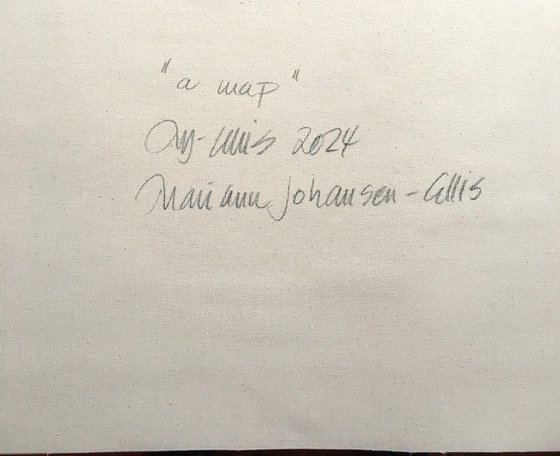 "a map"
My-Ellis 2024
Mariann Johansen-Ellis